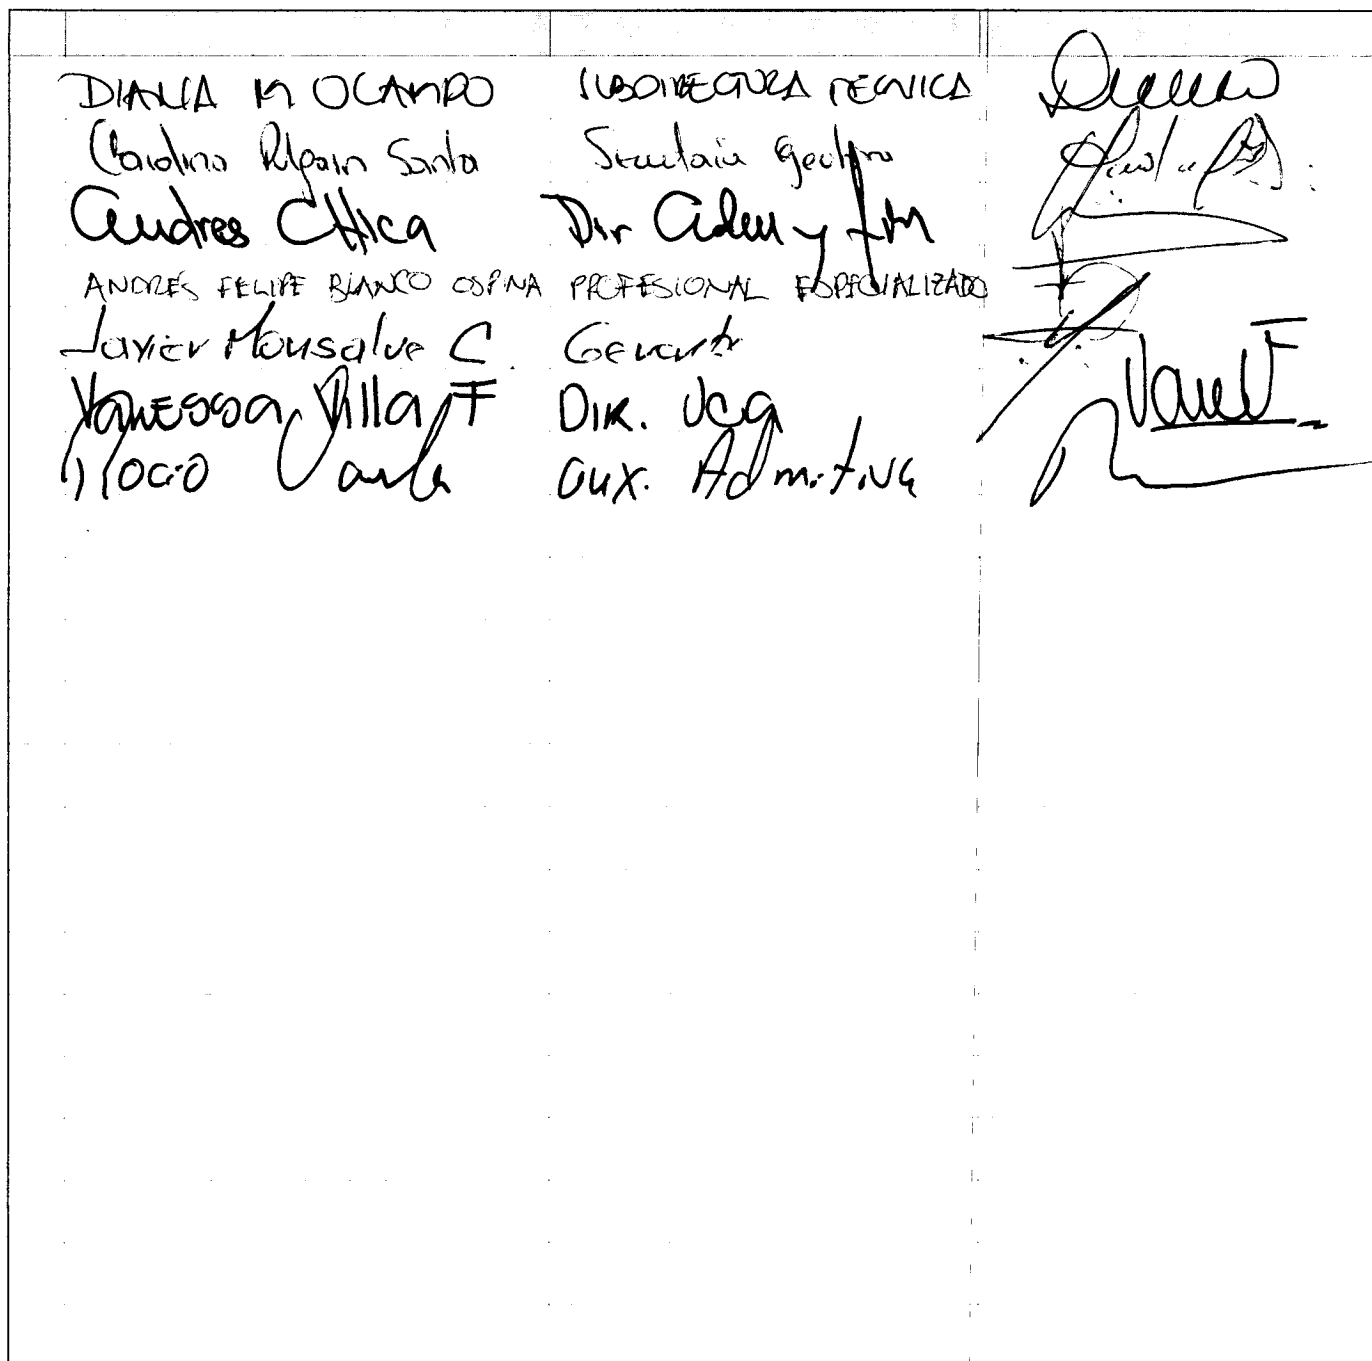 DIANA M OCAMPO SUBDIRECTORA TECNICA
Carolina Santa
Andres CHica Dir Adm y fin
ANDRES FELIPE BLANCO OSPINA PROFESIONAL ESPECIALIZADO
Javier Monsalve C Gerente
Vanessa Villa F DIR. UCG VaneVF
Rocio aux. Admitiva